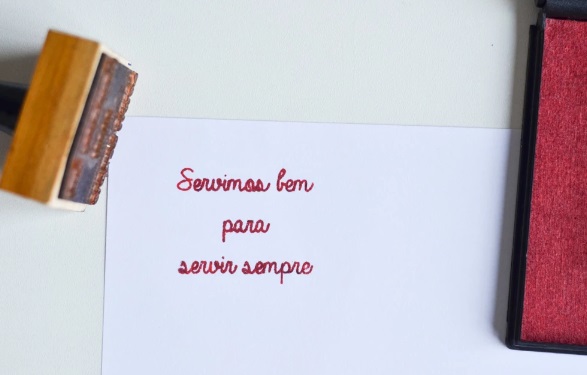 Servimos bem
para
servir sempre